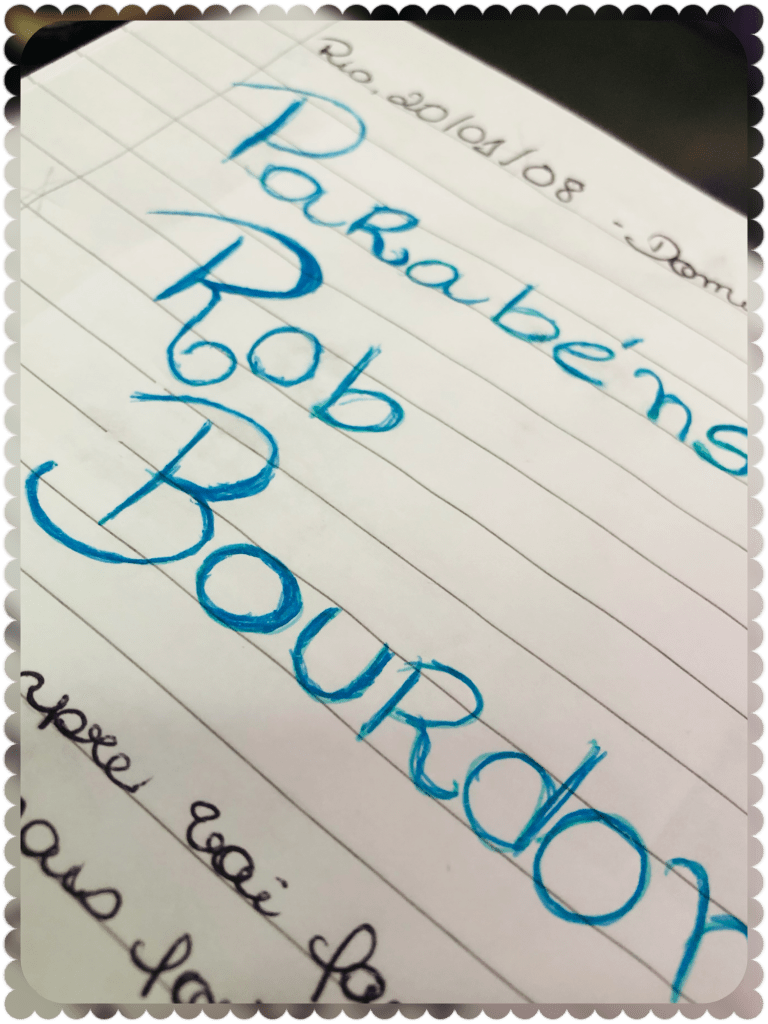 Rio, 20/01/08 - Dom
Parabéns
Rob
Bourdon
mpre vai fa
ais fa